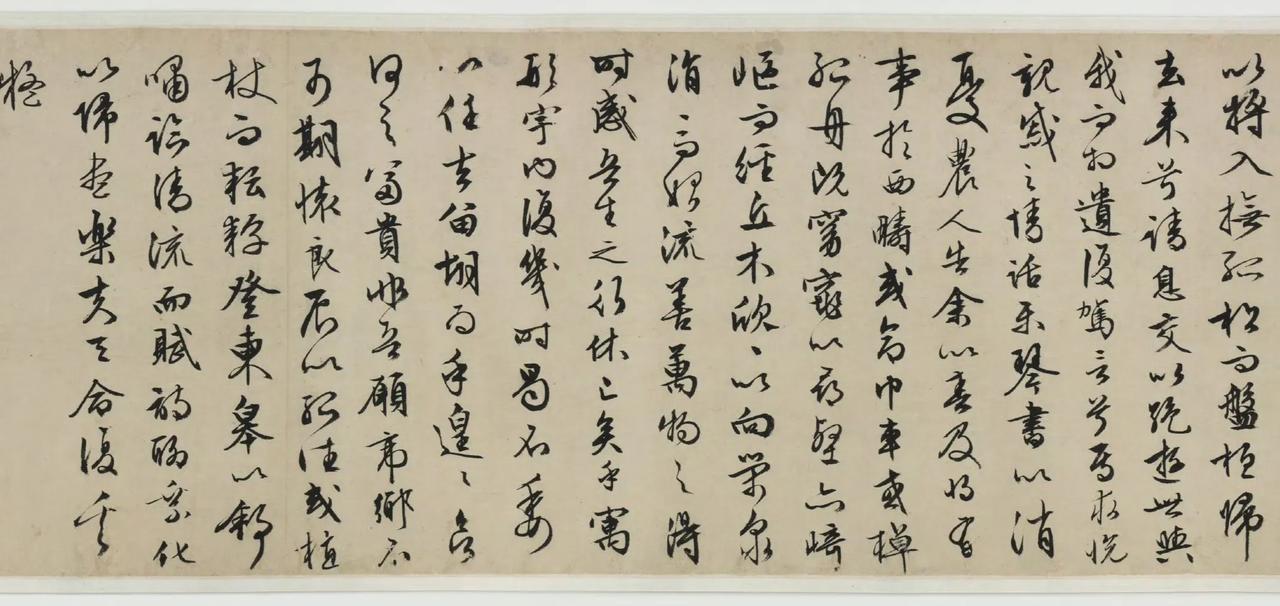 以將入撫孤松而盤桓歸
去來兮請息交以絶遊世與
我而相遺復駕言兮焉求悅
親戚之情話樂琴書以消
憂農人告余以春及將有
事於西疇或命巾車或棹
孤舟既窈窕以尋壑亦崎
嶇而經丘木欣々以向榮泉
涓々而始流善萬物之得
時感吾生之行休已矣乎寓
形宇内復幾時曷不委
心任去留胡為乎遑々欲
何之富貴非吾願帝鄉不
可期懷良辰以孤往或植
杖而耘耔登東皋以舒
嘯臨清流而賦詩聊乘化
以歸盡樂夫天命復奚
疑